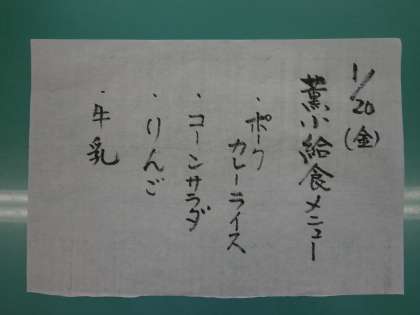 1/20(金)
薫小給食メニュー
・ポークカレーライス
・コーンサラダ
・りんご
・牛乳